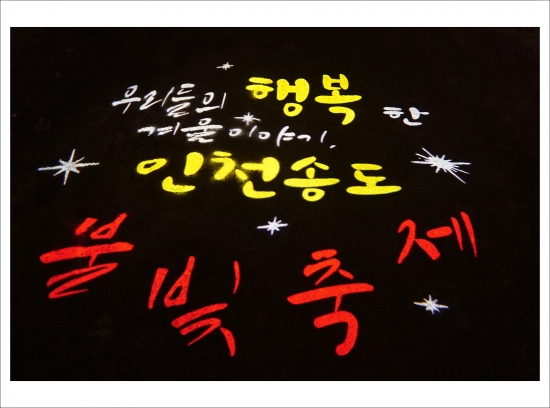 우리들의 행복한
겨울이야기.
인천송도
불빛축제